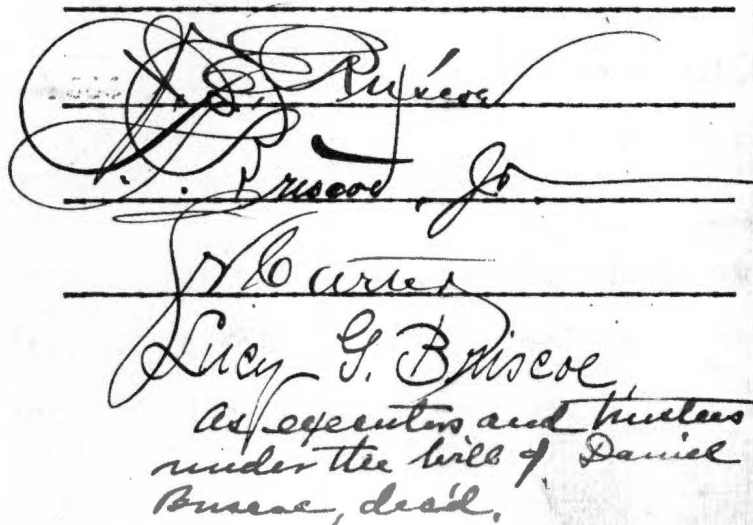 Briscoe
Briscoe, Jr.
Carter
Lucy G. Briscoe
As executors and trustees
under the will of Daniel
Briscoe, dec'd.